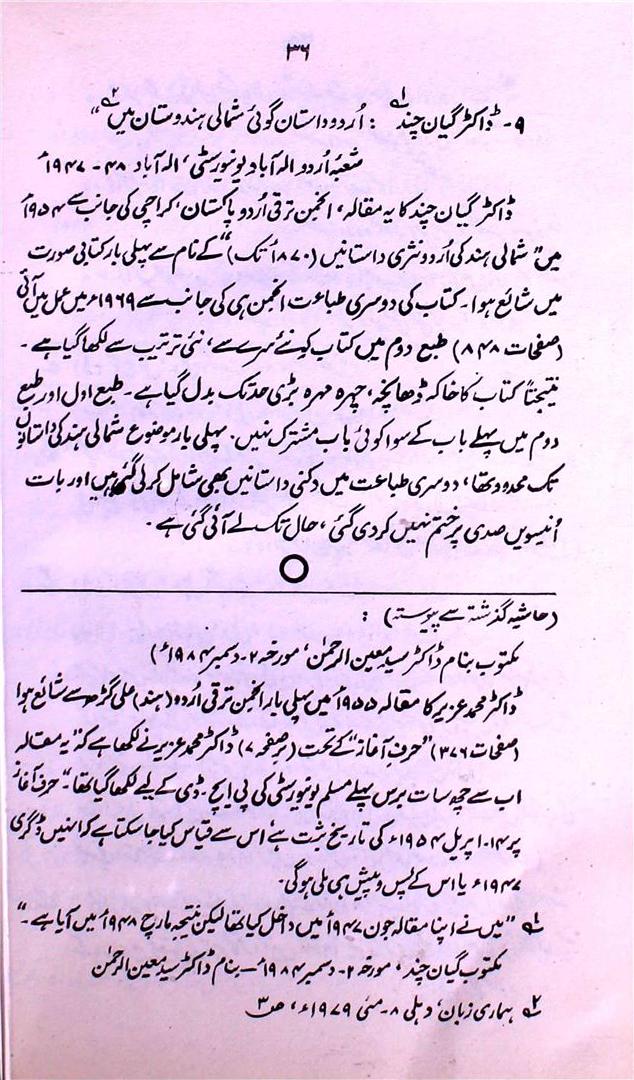 ۳۶
۹۔ ڈاکٹر گیان چند ۱؎ : اُردو داستان گوئی شمالی ہندوستان میں ۲؎ "
شعبۂ اُردو الہ آباد یونیورسٹی، الہ آباد ۴۸ - ۱۹۴۷ء
ڈاکٹر گیان چند کا یہ مقالہ، انجمن ترقی اُردو پاکستان، کراچی کی جانب سے ۱۹۵۴ء
میں "شمالی ہند کی اُردو نثری داستانیں (۱۸۷۰ء تک)" کے نام سے پہلی بار کتابی صورت
میں شائع ہوا۔ کتاب کی دوسری طباعت انجمن ہی کی جانب سے ۱۹۶۹ء میں عمل میں آئی
(صفحات ۸۴۸) طبع دوم میں کتاب کو نئے سرے سے، نئی ترتیب سے لکھا گیا ہے۔
نتیجتاً کتاب کا خاکہ ڈھانچہ، چہرہ مہرہ بڑی حد تک بدل گیا ہے۔ طبع اول اور طبع
دوم میں پہلے باب کے سوا کوئی باب مشترک نہیں۔ پہلی بار موضوع شمالی ہند کی داستانوں
تک محدود تھا، دوسری طباعت میں دکنی داستانیں بھی شامل کر لی گئی ہیں اور بات
اُنیسویں صدی پر ختم نہیں کر دی گئی، حال تک لے آئی گئی ہے۔
(حاشیہ گذشتہ سے پیوستہ) :
مکتوب بنام ڈاکٹر سید معین الرحمٰن، مورخہ ۲۔ دسمبر ۱۹۸۴ء)
ڈاکٹر محمد عزیر کا مقالہ ۱۹۵۵ء میں پہلی بار انجمن ترقی اُردو (ہند) علی گڑھ سے شائع ہوا
(صفحات ۳۷۶) "حرفِ آغاز" کے تحت (بر صفحہ ۷) ڈاکٹر محمد عزیر نے لکھا ہے کہ "یہ مقالہ
اب سے چھ سات برس پہلے مسلم یونیورسٹی کی پی ایچ۔ ڈی کے لیے لکھا گیا تھا۔" حرف آغاز
پر ۱۴۔ اپریل ۱۹۵۴ء کی تاریخ ثبت ہے، اس سے قیاس کیا جا سکتا ہے کہ انہیں ڈگری
۱۹۴۷ء یا اس کے پس و پیش ہی ملی ہو گی۔
۱؎ "میں نے اپنا مقالہ جون ۱۹۴۷ء میں داخل کیا تھا لیکن نتیجہ مارچ ۱۹۴۸ء میں آیا ہے۔"
مکتوب گیان چند، مورخہ ۲۔ دسمبر ۱۹۸۴ء — بنام ڈاکٹر سید معین الرحمٰن
۲؎ ہماری زبان، دہلی ۸۔ مئی ۱۹۷۹ء، ص ۳